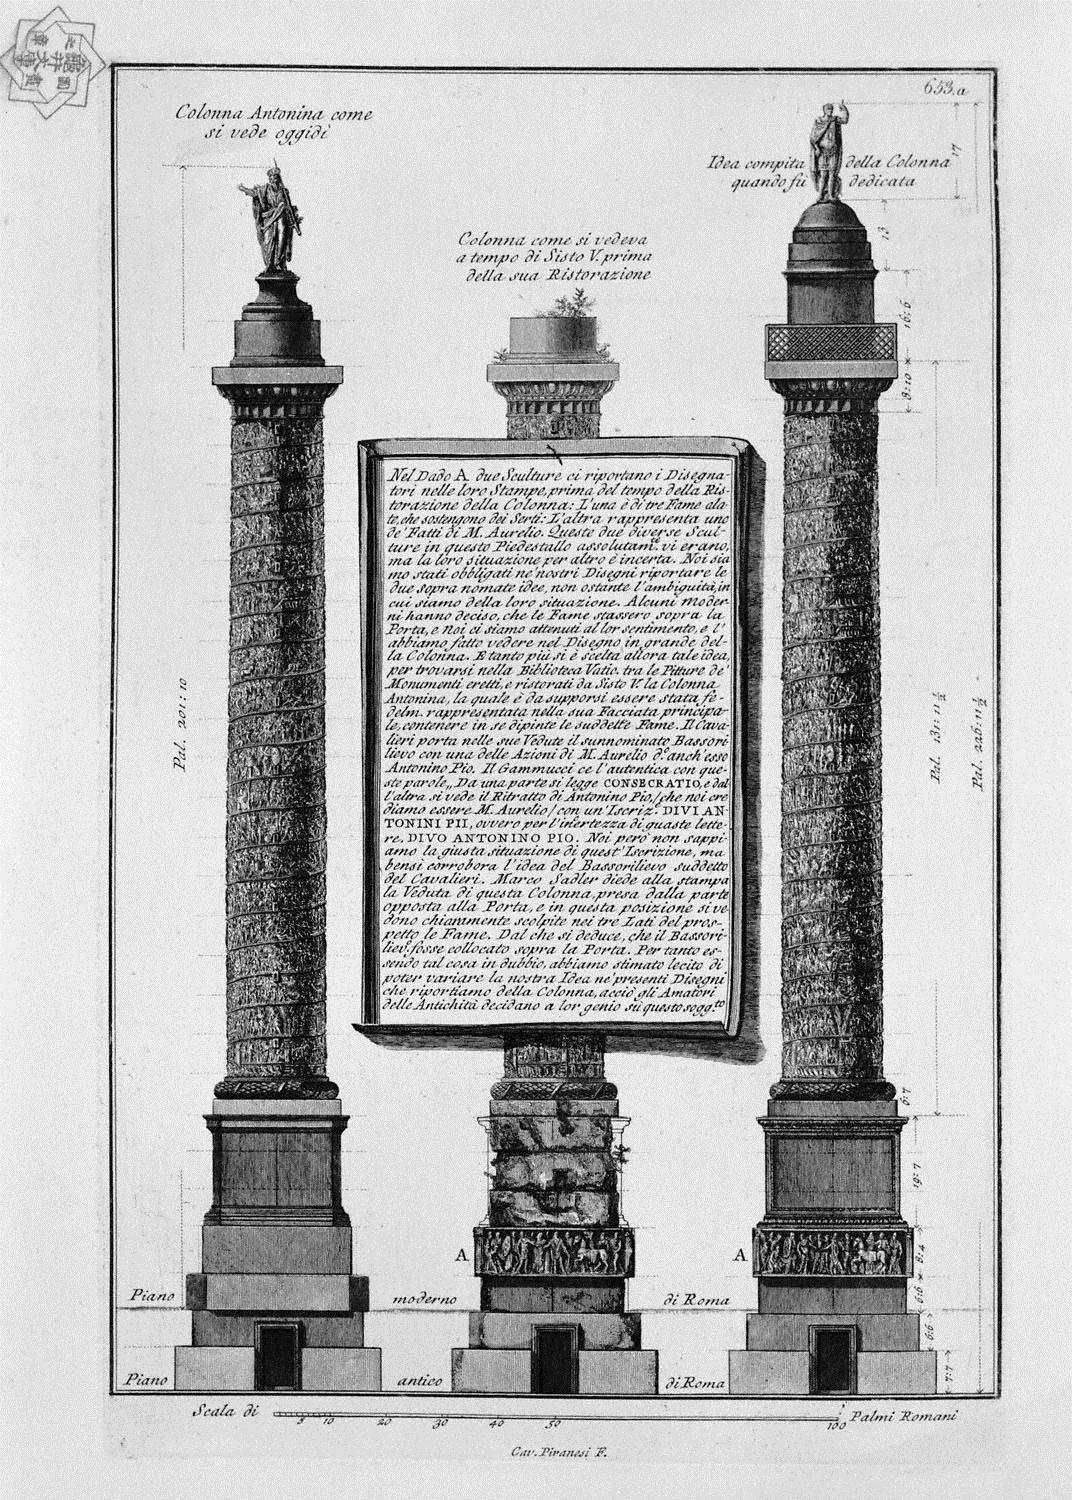 653.a
Colonna Antonina come
si vede oggidì
Idea compita della Colonna
quando fù dedicata
Colonna come si vedeva
a tempo di Sisto V. prima
della sua Ristorazione
17
13
16:6
8:10
Nel Dado A due Sculture ci riportano i Disegna-
tori nelle loro Stampe, prima del tempo della Ris-
torazione della Colonna: L'una è di tre Fame ala-
te, che sostengono dei Serti: L'altra rappresenta uno
de' Fatti di M. Aurelio. Queste due diverse Scul-
ture in questo Piedestallo assolutam.te vi erano,
ma la loro situazione per altro è incerta. Noi sia
mo stati obbligati ne' nostri Disegni riportare le
due sopra nomate idee, non ostante l'ambiguità, in
cui siamo della loro situazione. Alcuni moder-
ni hanno deciso, che le Fame stassero sopra la
Porta, e noi ci siamo attenuti al lor sentimento, e l'
abbiamo fatto vedere nel Disegno in grande del-
la Colonna. E tanto più si è scelta allora tale idea,
per trovarsi nella Biblioteca Vatic. tra le Pitture de'
Monumenti eretti, e ristorati da Sisto V. la Colonna
Antonina, la quale è da supporsi essere stata fe-
delm. rappresentata nella sua Facciata principa-
le, contenere in se dipinte le suddette Fame. Il Cava-
lieri porta nelle sue Vedute il sunnominato Bassori-
lievo con una delle Azioni di M. Aurelio d.o anch'esso
Antonino Pio. Il Gammucci ce l'autentica con que-
ste parole „ Da una parte si legge CONSECRATIO, e dal
l'altra si vede il Ritratto di Antonino Pio, /che noi cre
diamo essere M. Aurelio/ con un'Iscriz.e DIVI AN-
TONINI PII, ovvero per l'incertezza di quaste lette-
re, DIVO ANTONINO PIO. Noi però non sappi-
amo la giusta situazione di quest'Iscrizione, ma
bensì corrobora l'idea del Bassorilievo suddetto
del Cavalieri. Marco Sadler diede alla stampa
la Veduta di questa Colonna, presa dalla parte
opposta alla Porta, e in questa posizione si ve-
dono chiarmente scolpite nei tre Lati del pros-
petto le Fame. Dal che si deduce, che il Bassori-
liev. fosse collocato sopra la Porta. Per tanto es-
sendo tal cosa in dubbio, abbiamo stimato lecito di
poter variare la nostra Idea ne' presenti Disegni
che riportiamo della Colonna, acciò gli Amatori
delle Antichità decidano a lor genio sù questo sogg.to
Pal. 201:10
Pal. 131:11½
Pal. 226:11½
6:7
19:7
A
A
8:4
6:6
6:6
7:7
Piano moderno di Roma
Piano antico di Roma
Scala di 5 10 20 30 40 50 100 Palmi Romani
Cav. Piranesi F.